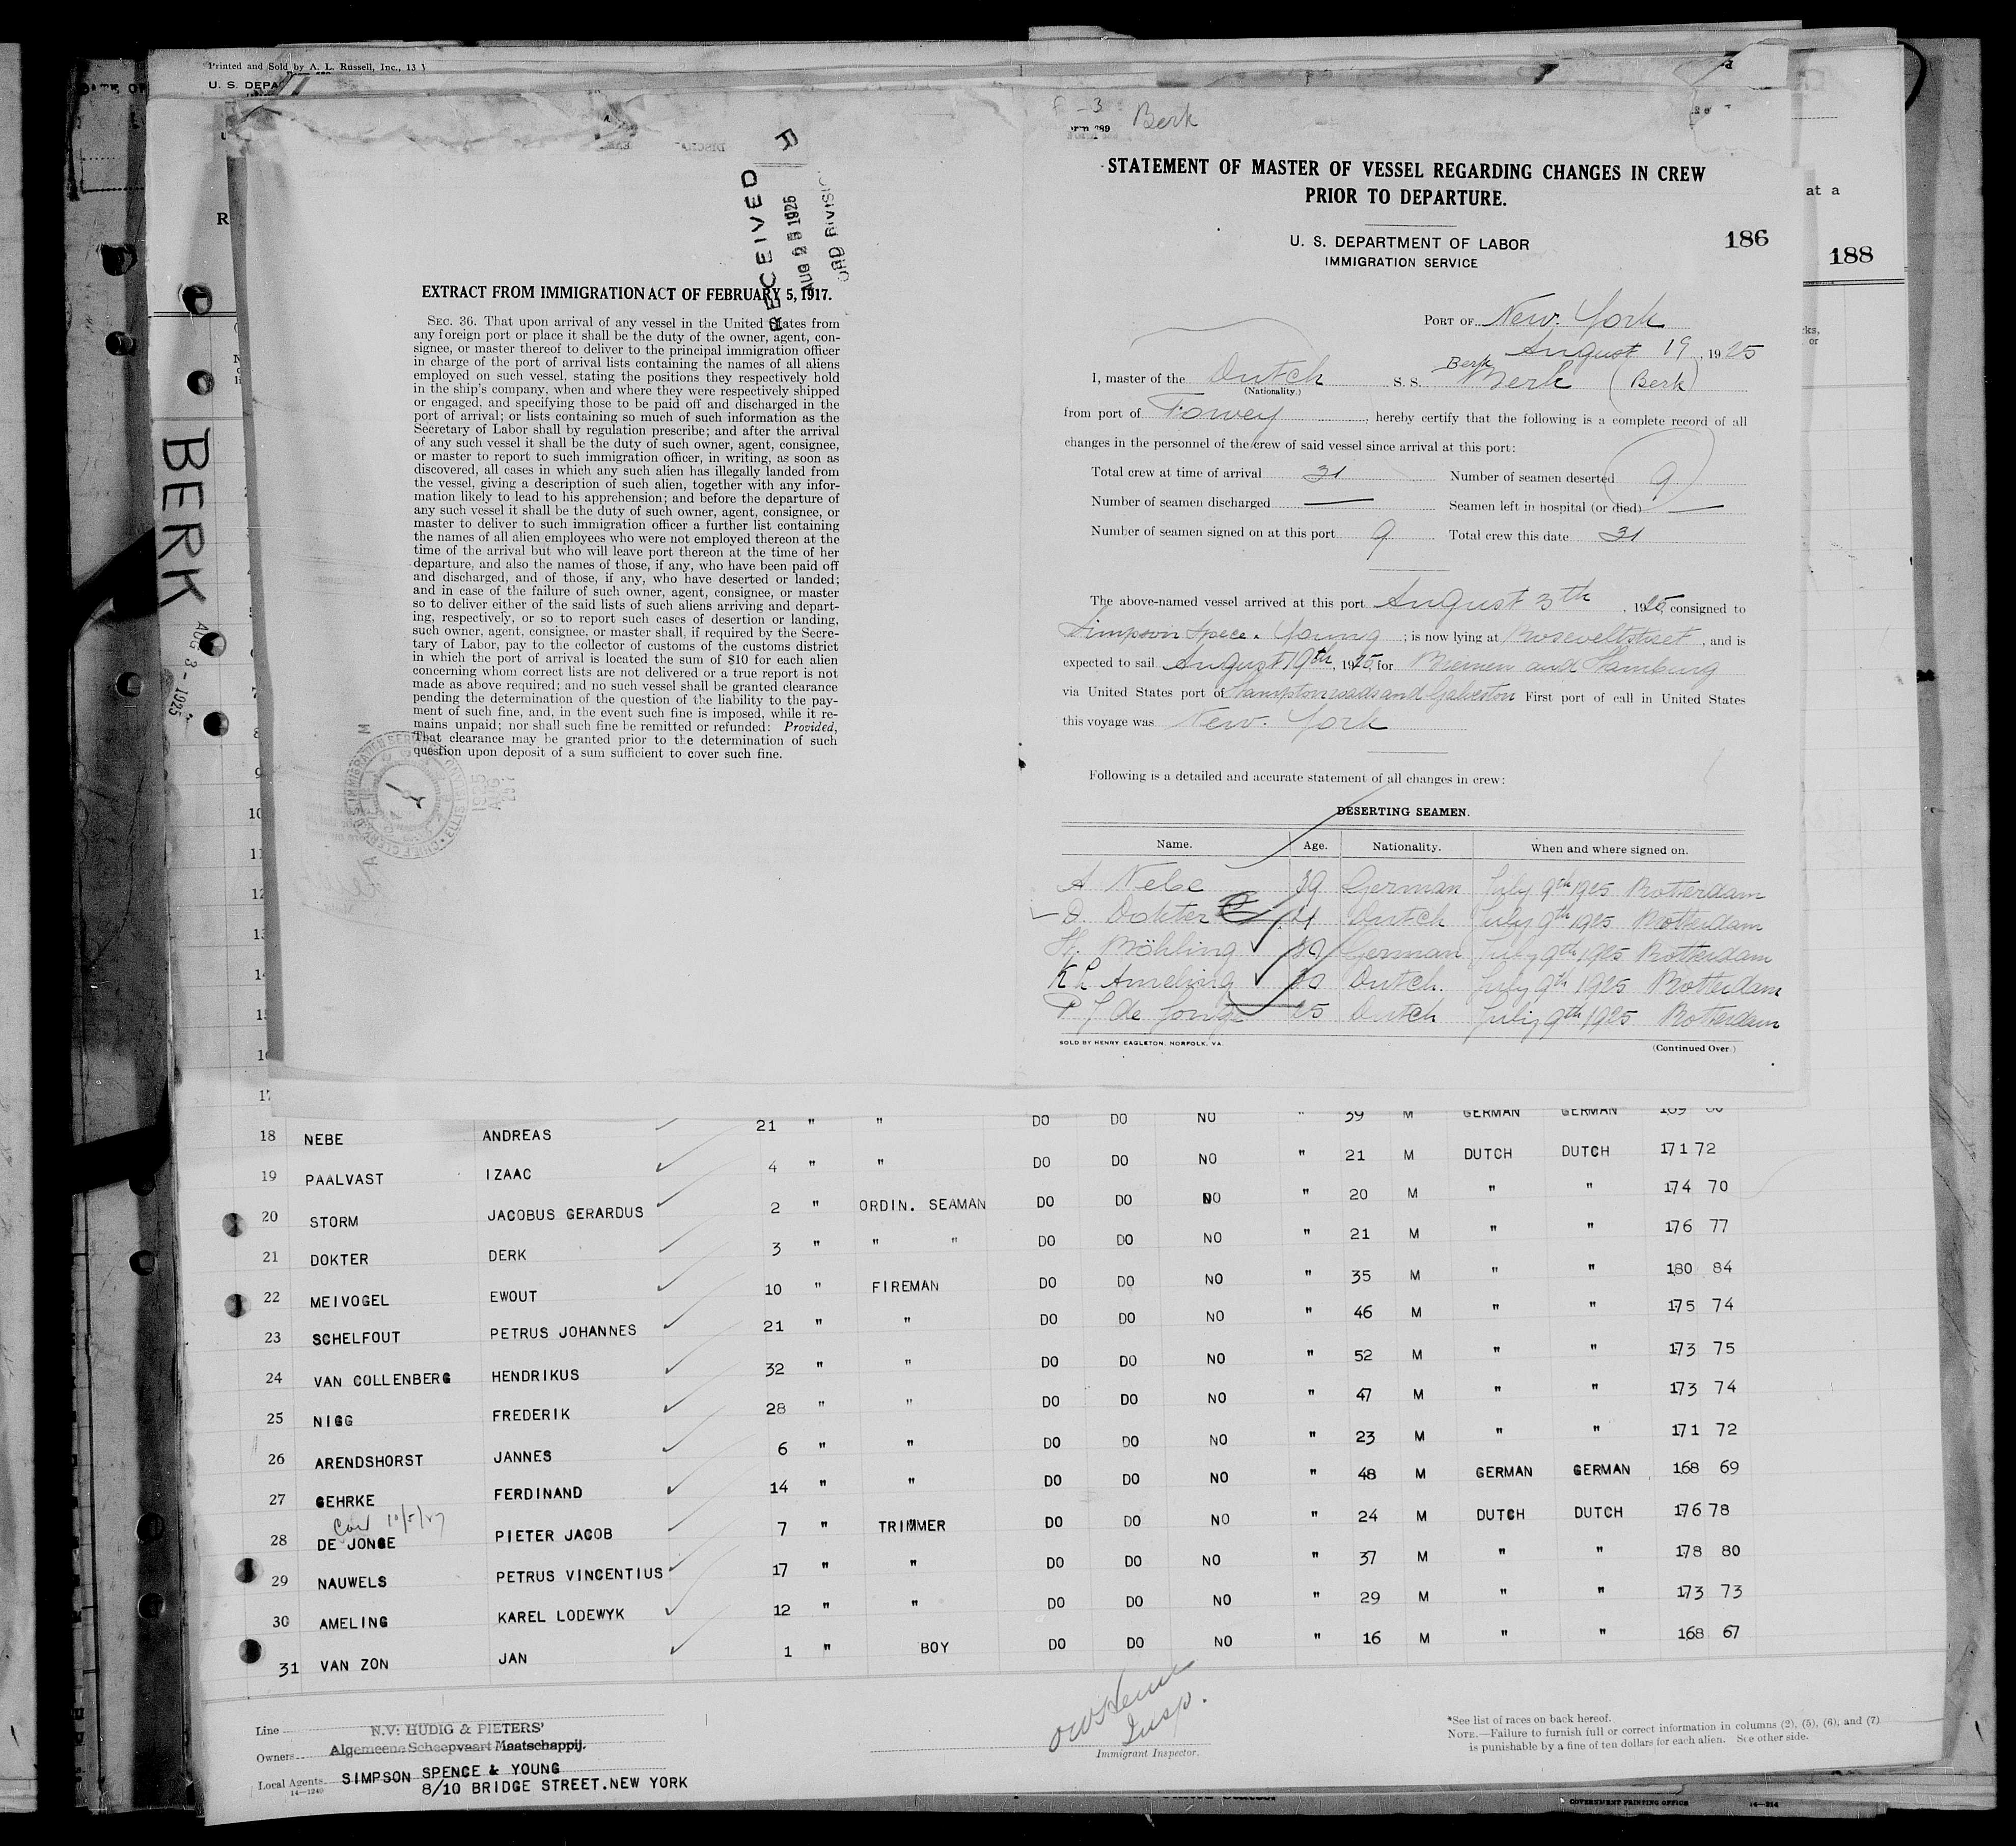 Printed and Sold by A. L. Russell, Inc., 13
U. S. DEPA
RECEIVED
AUG 25 1925
EXTRACT FROM IMMIGRATION ACT OF FEBRUARY 5, 1917.
SEC. 36. That upon arrival of any vessel in the United States from
any foreign port or place it shall be the duty of the owner, agent, con-
signee, or master thereof to deliver to the principal immigration officer
in charge of the port of arrival lists containing the names of all aliens
employed on such vessel, stating the positions they respectively hold
in the ship's company, when and where they were respectively shipped
or engaged, and specifying those to be paid off and discharged in the
port of arrival; or lists containing so much of such information as the
Secretary of Labor shall by regulation prescribe; and after the arrival
of any such vessel it shall be the duty of such owner, agent, consignee,
or master to report to such immigration officer, in writing, as soon as
discovered, all cases in which any such alien has illegally landed from
the vessel, giving a description of such alien, together with any infor-
mation likely to lead to his apprehension; and before the departure of
any such vessel it shall be the duty of such owner, agent, consignee, or
master to deliver to such immigration officer a further list containing
the names of all alien employees who were not employed thereon at the
time of the arrival but who will leave port thereon at the time of her
departure, and also the names of those, if any, who have been paid off
and discharged, and of those, if any, who have deserted or landed;
and in case of the failure of such owner, agent, consignee, or master
so to deliver either of the said lists of such aliens arriving and depart-
ing, respectively, or so to report such cases of desertion or landing,
such owner, agent, consignee, or master shall, if required by the Secre-
tary of Labor, pay to the collector of customs of the customs district
in which the port of arrival is located the sum of $10 for each alien
concerning whom correct lists are not delivered or a true report is not
made as above required; and no such vessel shall be granted clearance
pending the determination of the question of the liability to the pay-
ment of such fine, and, in the event such fine is imposed, while it re-
mains unpaid; nor shall such fine be remitted or refunded: Provided,
That clearance may be granted prior to the determination of such
question upon deposit of a sum sufficient to cover such fine.
BERK
AUG 3 - 1925
Berk
STATEMENT OF MASTER OF VESSEL REGARDING CHANGES IN CREW
PRIOR TO DEPARTURE.
U. S. DEPARTMENT OF LABOR
IMMIGRATION SERVICE
186
188
at a
PORT OF New. York
August 19, 1925
Berk
I, master of the Dutch S. S. Berk (Berk)
(Nationality.)
from port of Fowey, hereby certify that the following is a complete record of all
changes in the personnel of the crew of said vessel since arrival at this port:
Total crew at time of arrival 31 Number of seamen deserted 9
Number of seamen discharged — Seamen left in hospital (or died) —
Number of seamen signed on at this port 9 Total crew this date 31
The above-named vessel arrived at this port August 3th, 1925, consigned to
Simpson Spece. Young; is now lying at Roseveltstreet, and is
expected to sail August 19th, 1925, for Bremen and Hamburg
via United States port of Hamptonroads and Galveston First port of call in United States
this voyage was New. York
Following is a detailed and accurate statement of all changes in crew:
DESERTING SEAMEN.
Name. Age. Nationality. When and where signed on.
A Nebe 39 German July 9th 1925 Rotterdam
D. Dokter 21 Dutch July 9th 1925 Rotterdam
H. Böhling 39 German July 9th 1925 Rotterdam
K L Ameling 30 Dutch. July 9th 1925 Rotterdam
P J de Jonge 25 Dutch July 9th 1925 Rotterdam
SOLD BY HENRY EAGLETON, NORFOLK, VA.
(Continued Over.)
18 NEBE ANDREAS 21 " " DO DO NO " 39 M GERMAN GERMAN
19 PAALVAST IZAAC 4 " " DO DO NO " 21 M DUTCH DUTCH 171 72
20 STORM JACOBUS GERARDUS 2 " ORDIN. SEAMAN DO DO NO " 20 M " " 174 70
21 DOKTER DERK 3 " " " DO DO NO " 21 M " " 176 77
22 MEIVOGEL EWOUT 10 " FIREMAN DO DO NO " 35 M " " 180 84
23 SCHELFOUT PETRUS JOHANNES 21 " " DO DO NO " 46 M " " 175 74
24 VAN COLLENBERG HENDRIKUS 32 " " DO DO NO " 52 M " " 173 75
25 NIGG FREDERIK 28 " " DO DO NO " 47 M " " 173 74
26 ARENDSHORST JANNES 6 " " DO DO NO " 23 M " " 171 72
27 GEHRKE FERDINAND 14 " " DO DO NO " 48 M GERMAN GERMAN 168 69
28 DE JONGE PIETER JACOB 7 " TRIMMER DO DO NO " 24 M DUTCH DUTCH 176 78
29 NAUWELS PETRUS VINCENTIUS 17 " " DO DO NO " 37 M " " 178 80
30 AMELING KAREL LODEWYK 12 " " DO DO NO " 29 M " " 173 73
31 VAN ZON JAN 1 " BOY DO DO NO " 16 M " " 168 67
Line N.V: HUDIG & PIETERS'
Owners Algemeene Scheepvaart Maatschappij.
Local Agents SIMPSON SPENCE & YOUNG
14—1240 8/10 BRIDGE STREET.NEW YORK
Insp.
Immigrant Inspector.
*See list of races on back hereof.
NOTE.—Failure to furnish full or correct information in columns (2), (5), (6), and (7)
is punishable by a fine of ten dollars for each alien. See other side.
GOVERNMENT PRINTING OFFICE 14—214